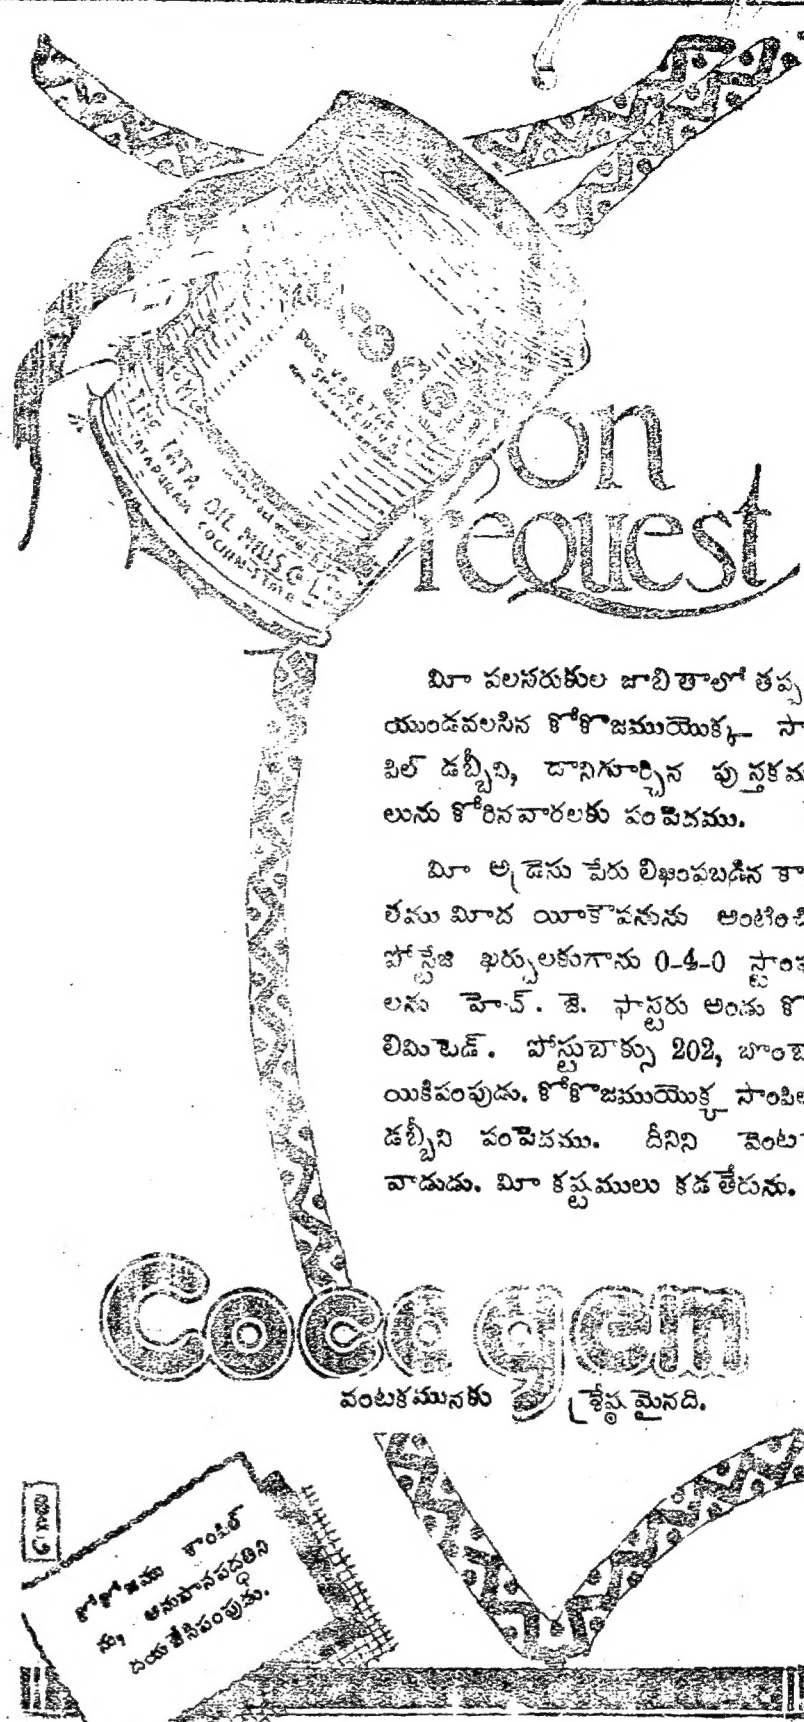 Coco gem
PURE VEGETABLE
THE TATA OIL MILLS Co. LTD.
TATAPURAM COCHIN STATE
on
request
మీ పలసరుకుల జాబితాలో తప్ప
యుండవలసిన కోకొజముయొక్క సా
పిల్ డబ్బీని, దానిగూర్చిన పుస్తకము
లును కోరినవారలకు పంపెదము.
మీ అడ్రెసు పేరు లిఖింపబడిన కా
తము మీద యీకౌపనును అంటించి
పోస్టేజి ఖర్చులకుగాను 0-4-0 స్టాంపు
లను హెచ్. జె. ఫాస్టరు అండు కో
లిమిటెడ్. పోస్టుబాక్సు 202, బొంబా
యికిపంపుడు. కోకొజముయొక్క సాంపిల
డబ్బీని పంపెదము. దీనిని వెంట
వాడుడు. మీ కష్టములు కడతేరును.
Cocogem
వంటకమునకు శ్రేష్ఠమైనది.
కోకోజము శాంపిల్
ను, అనుపానపద్ధతిని
దయచేసిపంపుడు.